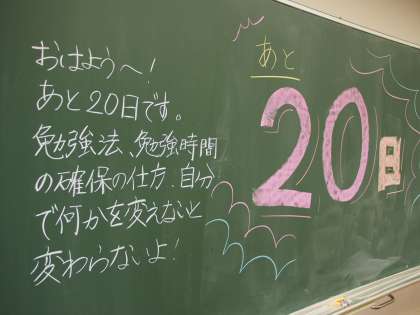 おはようへ！
あと20日です。
勉強法、勉強時間
の確保の仕方、自分
で何かを変えないと
変わらないよ！
あと
20日